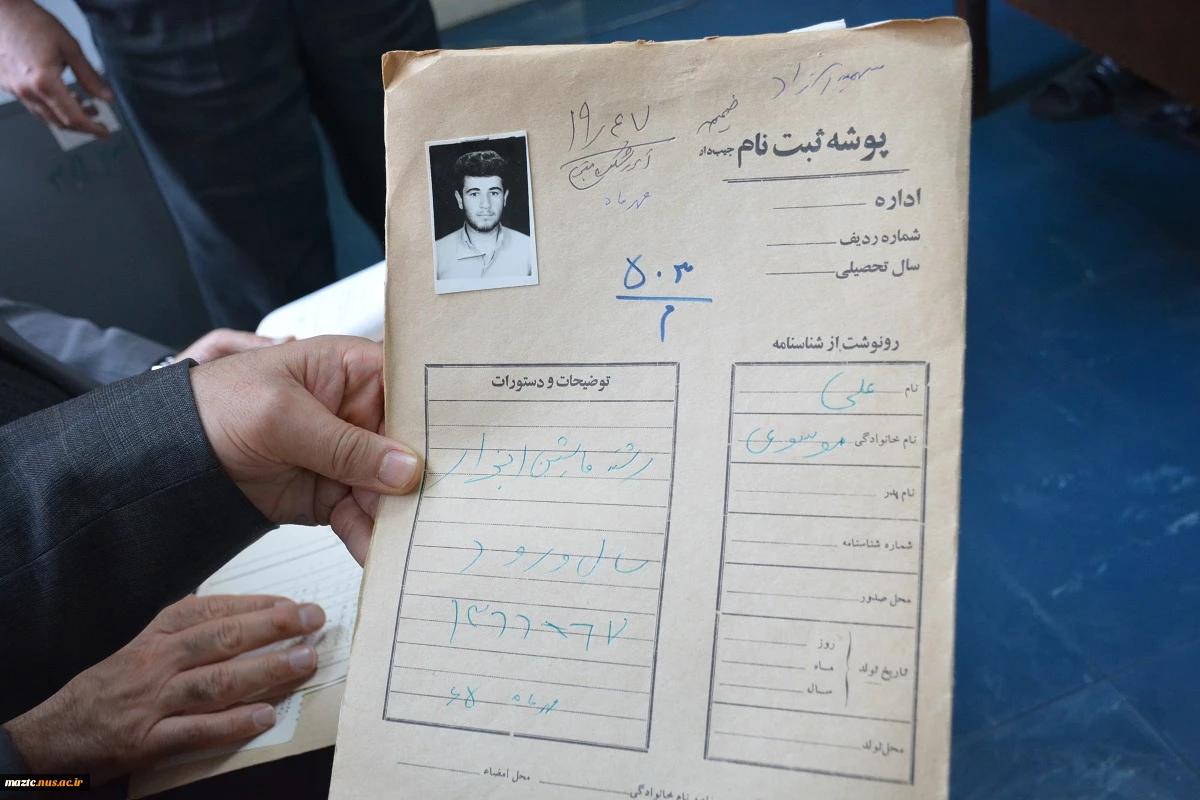 ضمیمه
۱۹٫۴۷
مهرماه
پوشه ثبت نام جیب‌دار
اداره
شماره ردیف
سال تحصیلی
۵۰۳
م
رونوشت از شناسنامه
نام علی
نام خانوادگی موسوی
نام پدر
شماره شناسنامه
محل صدور
تاریخ تولد
روز
ماه
سال
محل تولد
توضیحات و دستورات
رشته ماشین ابزار
سال ورود
۱۳۶۶-۶۷
مهرماه ۶۵
محل امضاء
نام خانوادگی
maztc.nus.ac.ir